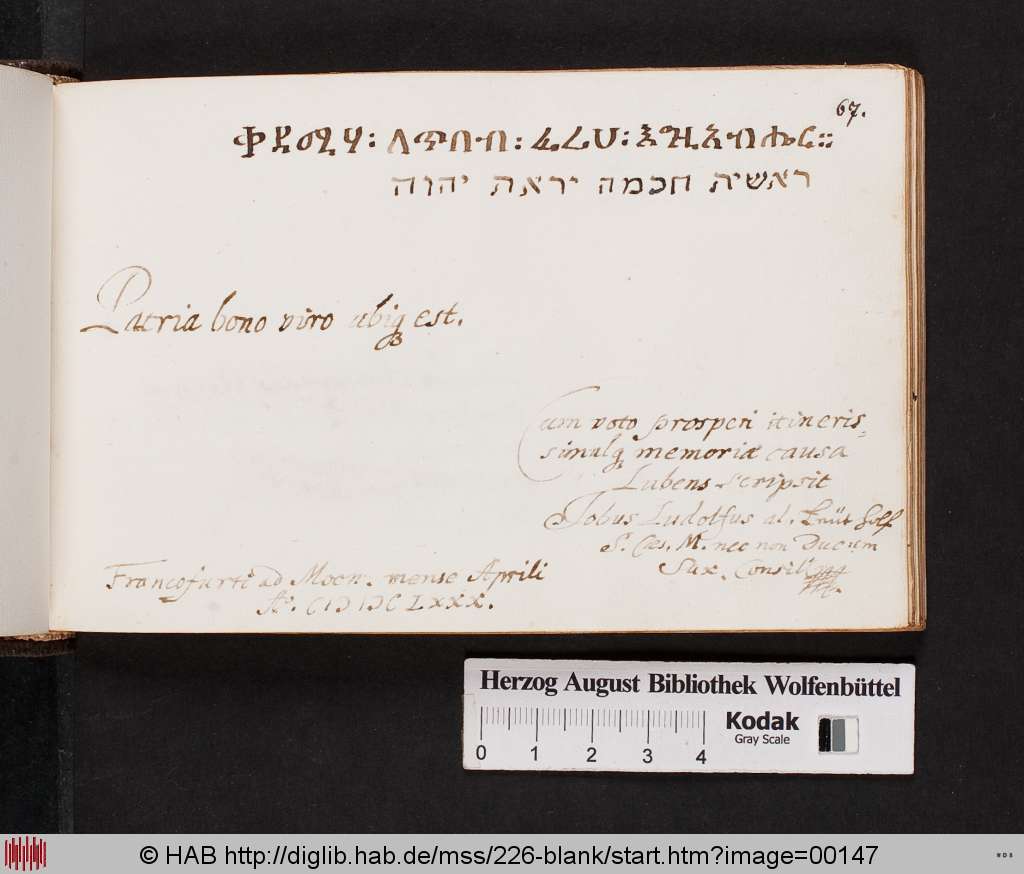 67.
ቀዳሚሃ፡ ለጥበብ፡ ፈሪሀ፡ እግዚአብሔር።
ראשית חכמה יראת יהוה
Patria bono viro ubiq est.
Cum voto prosperi itineris,
simulq memoriæ causa
Lubens scripsit
Jobus Ludolfus al. Leüt holf
S. Cæs. M. nec non Ducum
Sax. Consil
Francofurti ad Moen. mense Aprili
Aº. CIƆ IƆC LXXX.
Herzog August Bibliothek Wolfenbüttel
Kodak
Gray Scale
0 1 2 3 4
© HAB http://diglib.hab.de/mss/226-blank/start.htm?image=00147
WDB